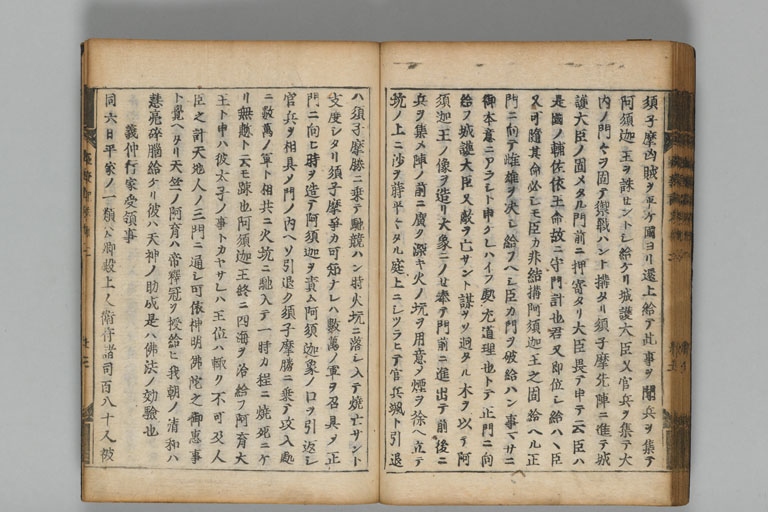 須子摩凶賊ヲ平ケ國ヨリ還上給テ此事ヲ聞兵ヲ集テ
阿須迦王ヲ誅セントシ給ケリ城護大臣又官兵ヲ集テ大
内ノ門々ヲ固テ禦戰ハント搆タリ須子摩先陣ニ進テ城
護大臣ノ固メタル門前ニ押寄タリ大臣畏テ申テ云臣ハ
是國ノ輔佐依王命故ニ守門計也君又即位シ給ヘハ臣
又可隨其命必シモ臣カ非結搆阿須迦王之固給ヘル正
門ニ向テ雌雄ヲ决シ給フヘシ臣カ門ヲ破給ハン事マサニ
御本意ニアラシト申ケレハイフ所尤道理也トテ正門ニ向
給フ城護大臣又敵ヲ亡サント謀ヲ廻タル木ヲ以テ阿
須迦王ノ像ヲ造リ大象ニノセ奉テ門前ニ進出テ前後ニ
兵ヲ集メ陣ノ前ニ廣ク深キ火ノ坑ヲ用意ノ煙ヲ徐ヘ立テ
坑ノ上ニ沙ヲ蒔平々タル庭上ニシツラヒテ官兵颯ト引退
ハ須子摩勝ニ乗テ馳競ハン時火坑ニ落シ入テ燒亡サント
支度シタリ須子摩爭カ可知ナレハ數萬ノ軍ヲ召具メ正
門ニ向ヒ時ヲ造テ阿須迦ヲ責ム阿須迦象ノ口ヲ引返シ
官兵ヲ相具メ門ノ内ヘソ引退ク須子摩勝ニ乗テ攻入處
ニ數萬ノ軍ト相共ニ火坑ニ馳入テ一時カ程ニ燒死ニケ
リ無慙ト云モ疎也阿須迦王終ニ四海ヲ治給フ阿育大
王ト申ハ彼太子ノ事トカヤサレハ王位ハ輙ク不可及人
臣之計天地人ノ三門ニ通シ可依神明佛陀之御惠事
ト覺ヘタリ天竺ノ阿育ハ帝釋冠ヲ授給ヒ我朝ノ清和ハ
惠亮碎腦給ケリ彼ハ天神ノ助成是ハ佛法ノ効驗也
義仲行家受領事
同六日平家ノ一類ト卿殿上人衛府諸司百八十人被